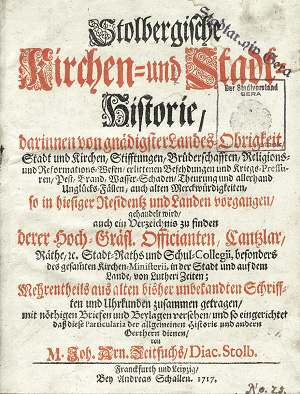 Stolbergische
Kirchen- und Stadt-
Historie/
Stadtarchiv Gera
Der Stadtvorstand
GERA
darinnen von gnädigster Landes-Obrigkeit/
Stadt und Kirchen, Stifftungen, Brüderschafften, Religions-
und Reformations-Wesen/ erlittenen Befehdungen und Kriegs-Pressu-
ren/ Pest, Brand, Wasser-Schaden/ Theurung und allerhand
Unglücks-Fällen, auch alten Merckwürdigkeiten/
so in hiesiger Residentz und Landen vorgangen/
gehandelt wird/
auch ein Verzeichnis zu finden
derer Hoch-Gräfl. Officianten, Cantzlar,
Räthe/ ec. Stadt-Raths und Schul-Collegii, besonders
des gesamten Kirchen-Ministerii, in der Stadt und auf dem
Lande, von Lutheri Zeiten;
Mehrentheils aus alten bisher unbekandten Schriff-
ten und Uhrkunden zusammen getragen/
mit nöthigen Briefen und Beylagen versehen/ und so eingerichtet
daß diese Particularia der allgemeinen Historie und andern
Oerthern dienen/
von
M. Joh. Arn. Zeitfuchs/ Diac. Stolb.
Franckfurth und Leipzig/
Bey Andreas Schallen. 1717.